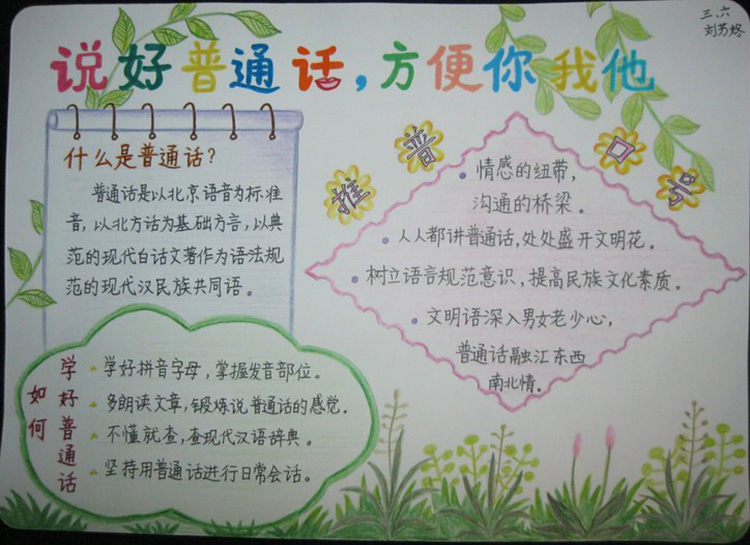 三.六
刘芳炵
说好普通话,方便你我他
什么是普通话?
普通话是以北京语音为标准
音,以北方话为基础方言,以典
范的现代白话文著作为语法规
范的现代汉民族共同语。
推普口号
情感的纽带,
沟通的桥梁。
人人都讲普通话,处处盛开文明花。
树立语言规范意识,提高民族文化素质。
文明语深入男女老少心,
普通话融汇东西
南北情。
如何
学好普通话
学好拼音字母,掌握发音部位。
多朗读文章,锻炼说普通话的感觉.
不懂就查,查现代汉语辞典。
坚持用普通话进行日常会话。